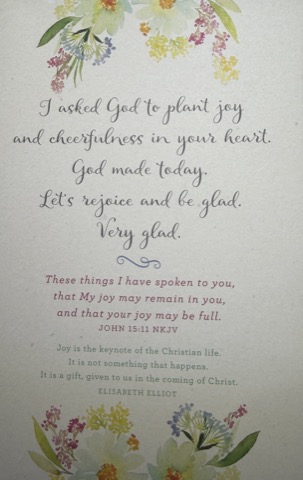 I asked God to plant joy
and cheerfulness in your heart.
God made today.
Let's rejoice and be glad.
Very glad.
These things I have spoken to you,
that My joy may remain in you,
and that your joy may be full.
JOHN 15:11 NKJV
Joy is the keynote of the Christian life.
It is not something that happens.
It is a gift, given to us in the coming of Christ.
ELISABETH ELLIOT